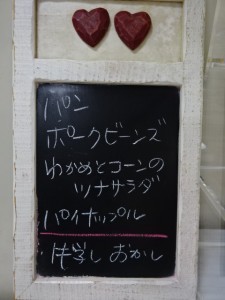 パン
ポークビーンズ
わかめとコーンの
ツナサラダ
パイナップル
おかし